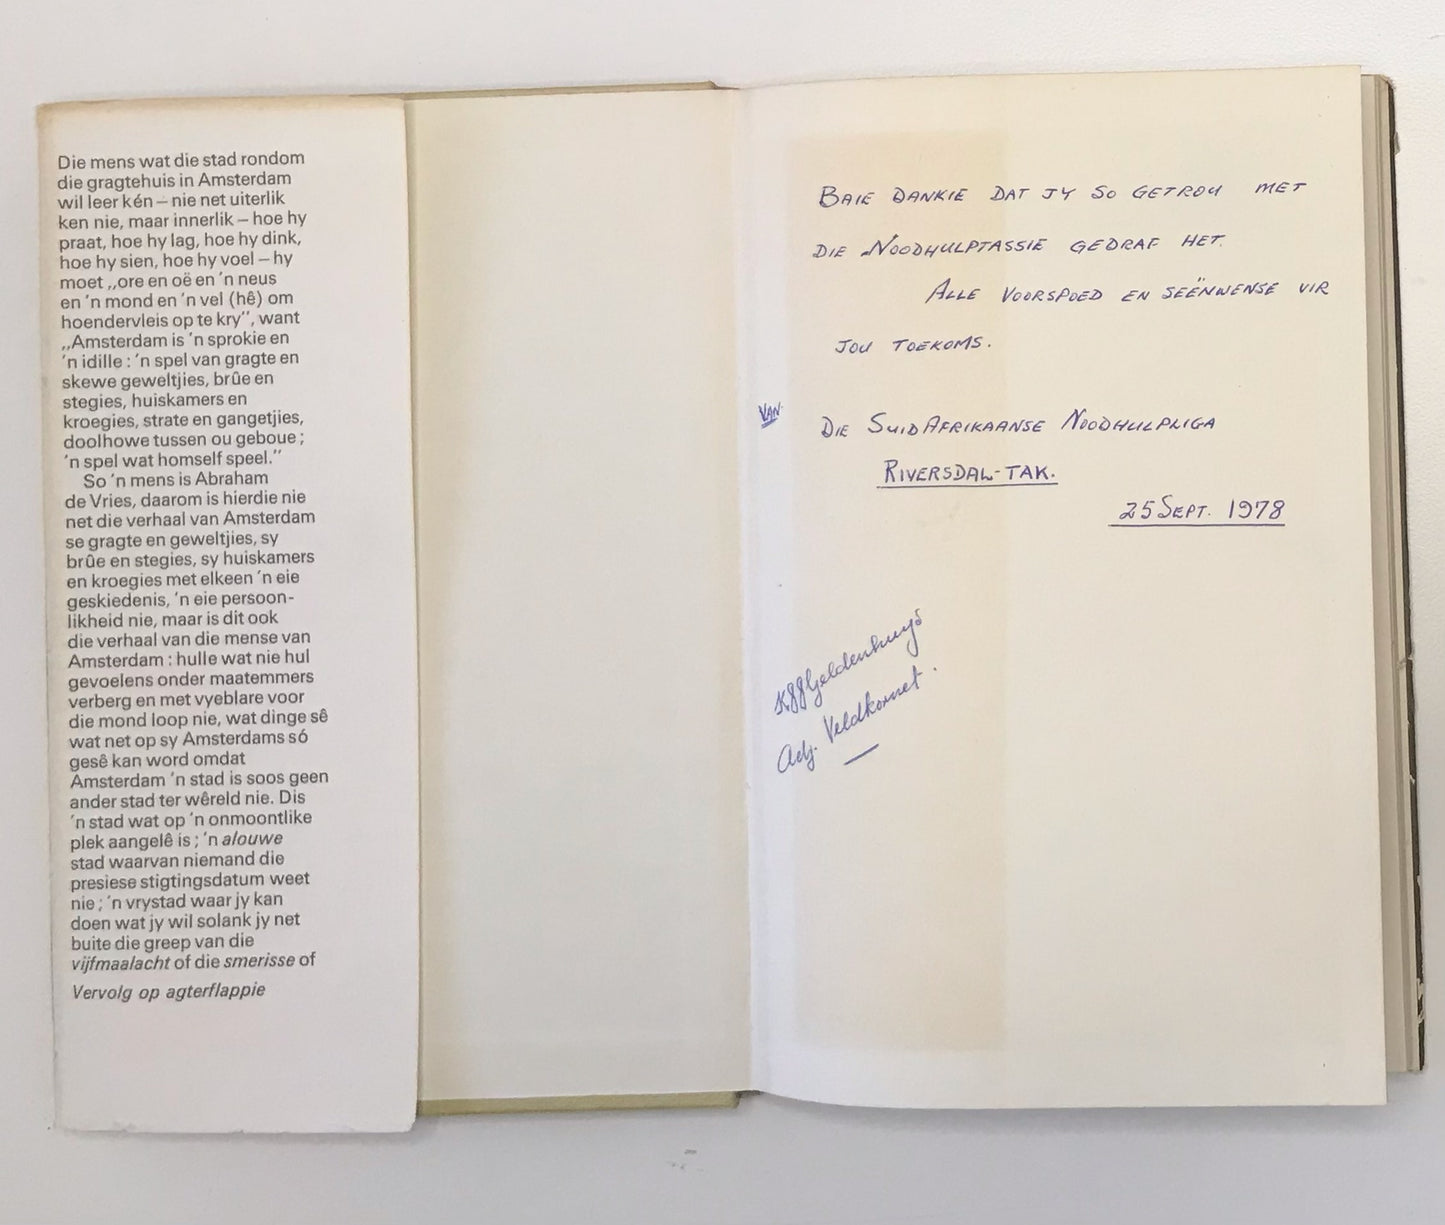 Die mens wat die stad rondom
die gragtehuis in Amsterdam
wil leer kén – nie net uiterlik
ken nie, maar innerlik – hoe hy
praat, hoe hy lag, hoe hy dink,
hoe hy sien, hoe hy voel – hy
moet ,,ore en oë en 'n neus
en 'n mond en 'n vel (hê) om
hoendervleis op te kry”, want
,,Amsterdam is 'n sprokie en
'n idille : 'n spel van gragte en
skewe geweltjies, brûe en
stegies, huiskamers en
kroegies, strate en gangetjies,
doolhowe tussen ou geboue ;
'n spel wat homself speel.”
So 'n mens is Abraham
de Vries, daarom is hierdie nie
net die verhaal van Amsterdam
se gragte en geweltjies, sy
brûe en stegies, sy huiskamers
en kroegies met elkeen 'n eie
geskiedenis, 'n eie persoon-
likheid nie, maar is dit ook
die verhaal van die mense van
Amsterdam : hulle wat nie hul
gevoelens onder maatemmers
verberg en met vyeblare voor
die mond loop nie, wat dinge sê
wat net op sy Amsterdams só
gesê kan word omdat
Amsterdam 'n stad is soos geen
ander stad ter wêreld nie. Dis
'n stad wat op 'n onmoontlike
plek aangelê is ; 'n alouwe
stad waarvan niemand die
presiese stigtingsdatum weet
nie ; 'n vrystad waar jy kan
doen wat jy wil solank jy net
buite die greep van die
vijfmaalacht of die smerisse of
Vervolg op agterflappie
BAIE DANKIE DAT JY SO GETROU MET
DIE NOODHULPTASSIE GEDRAF HET.
ALLE VOORSPOED EN SEËNWENSE VIR
JOU TOEKOMS.
VAN
DIE SUID AFRIKAANSE NOODHULPLIGA
RIVERSDAL-TAK.
25 SEPT. 1978
Geldenhuys
Adj. Veldkornet.